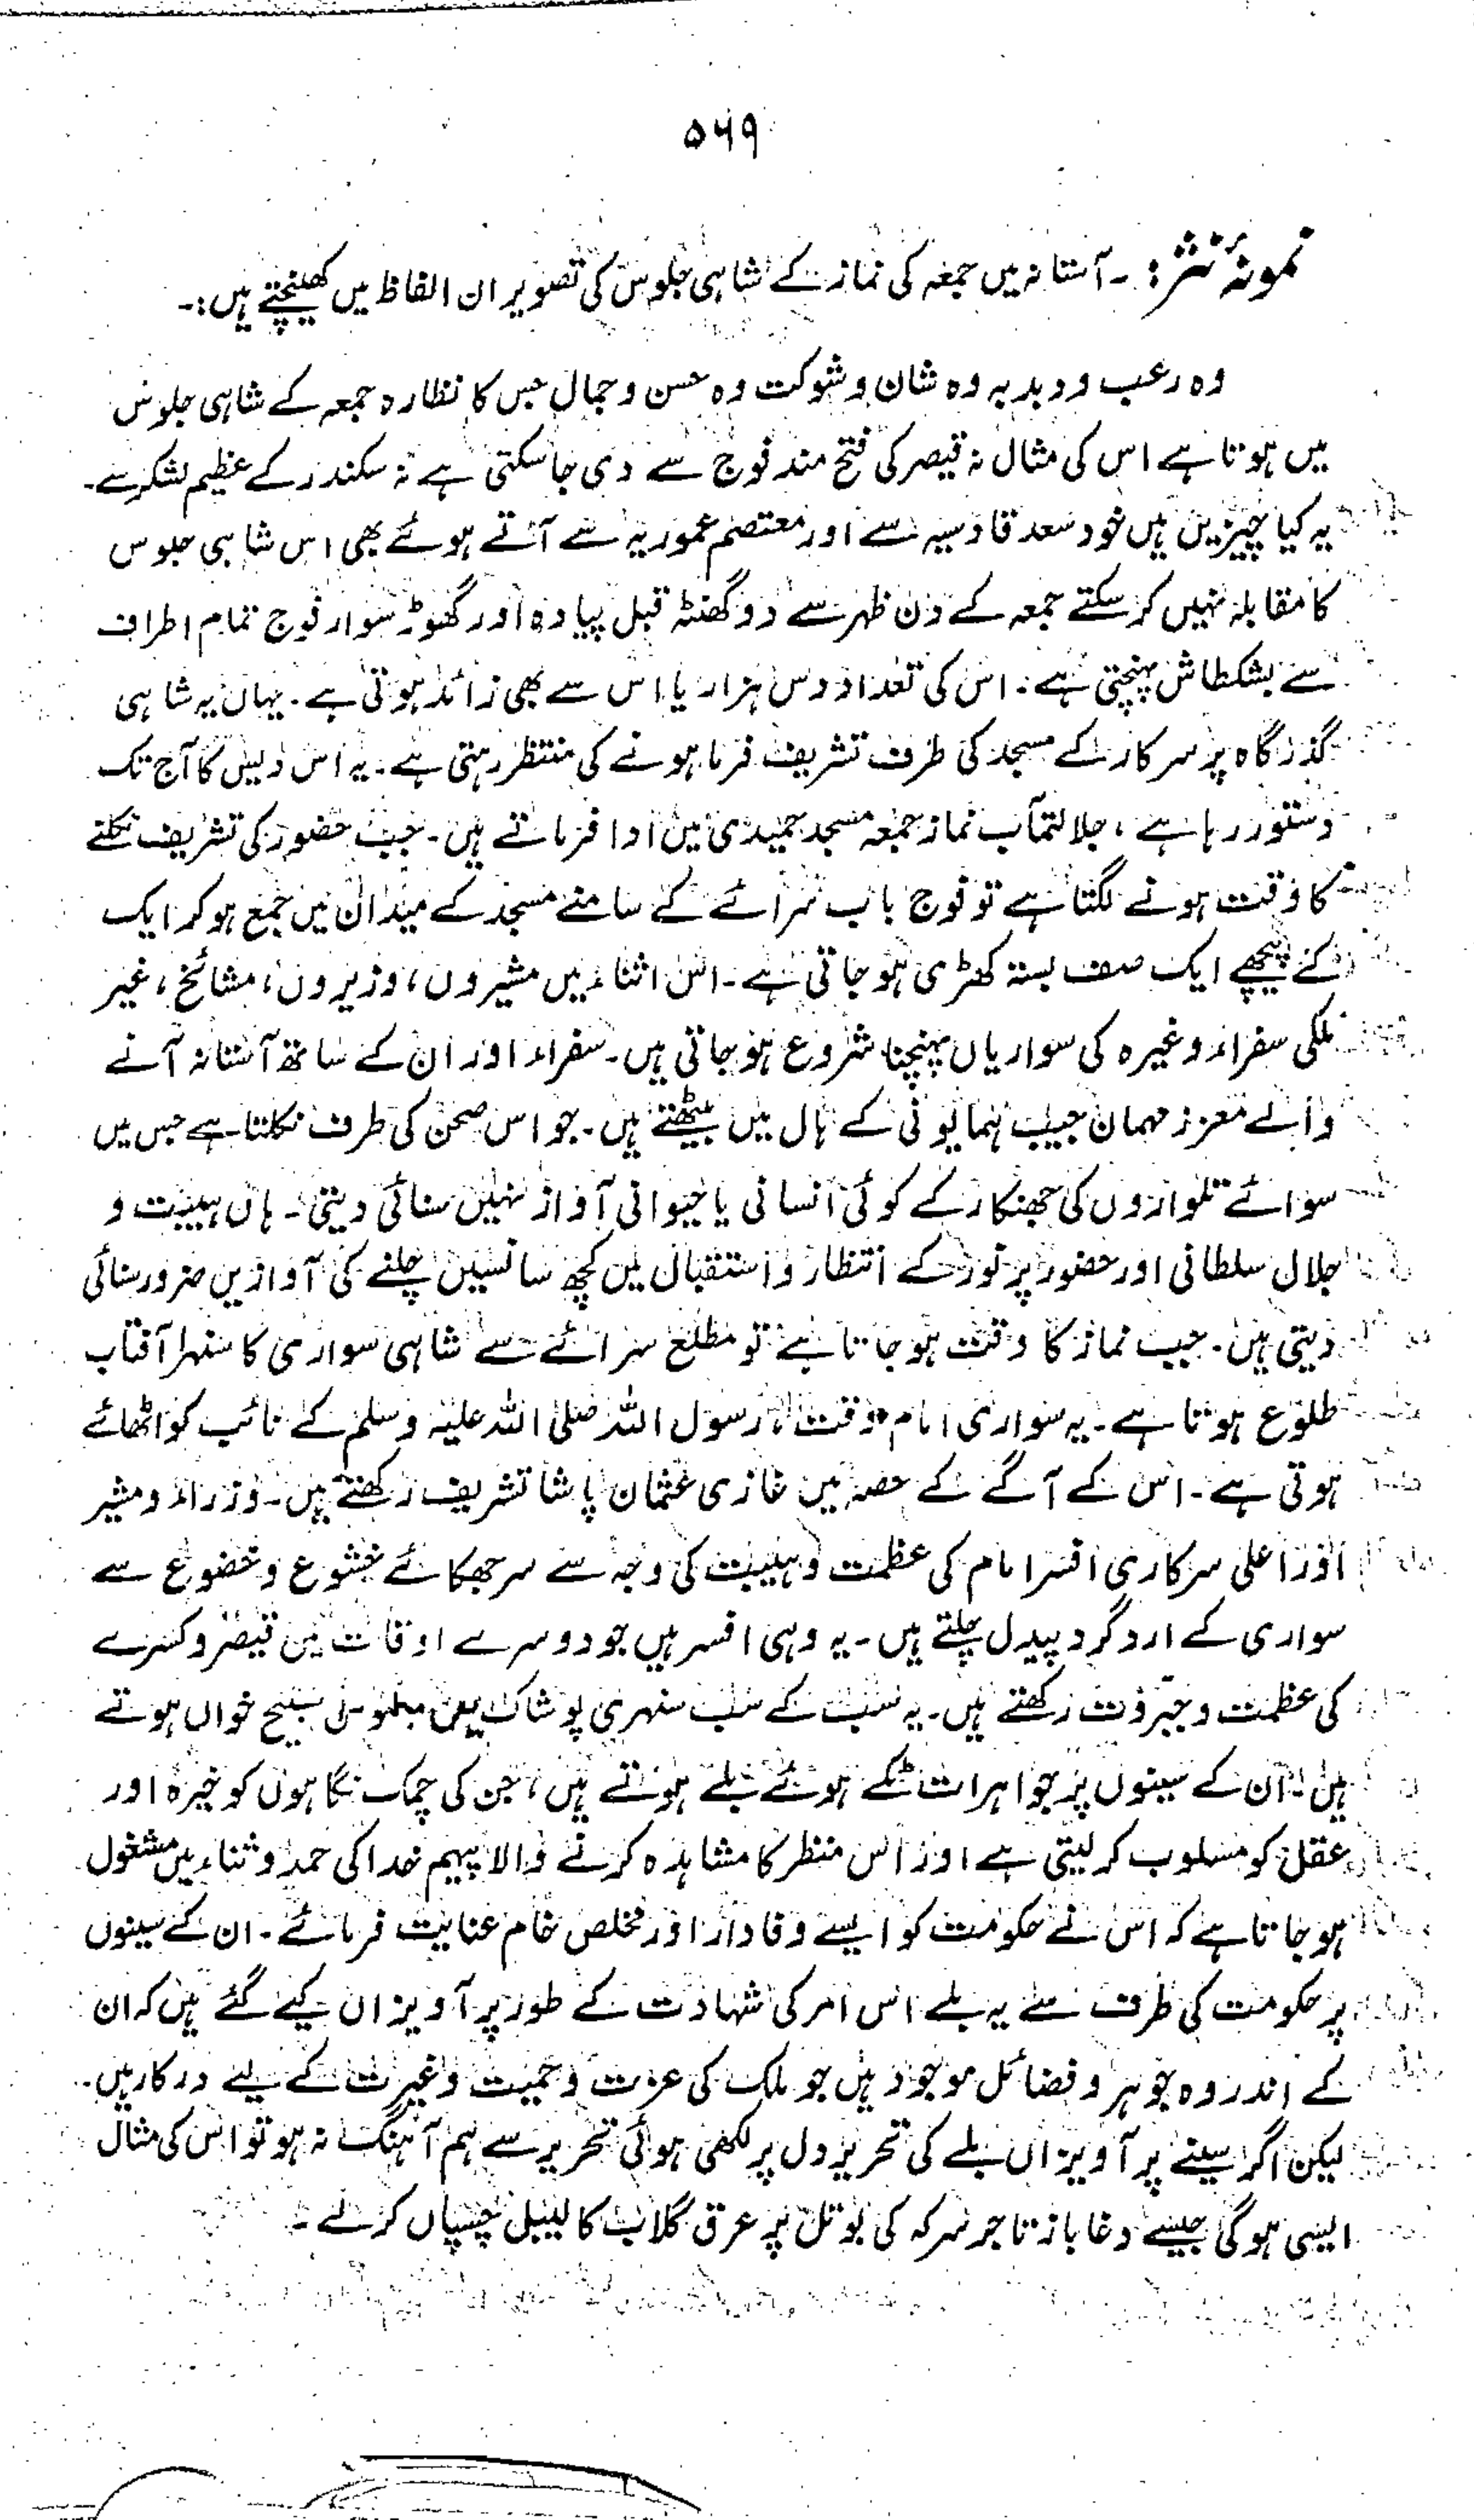 ۵۶۹
نمونۂ نثر: ۔ آستانہ میں جمعہ کی نماز کے شاہی جلوس کی تصویر ان الفاظ میں کھینچتے ہیں:۔
وہ رعب و دبدبہ وہ شان و شوکت وہ حسن و جمال جس کا نظارہ جمعہ کے شاہی جلوس
میں ہوتا ہے اس کی مثال نہ قیصر کی فتح مند فوج سے دی جا سکتی ہے نہ سکندر کے عظیم لشکر سے۔
یہ کیا چیزیں ہیں خود سعد قادسیہ سے اور معتصم عموریہ سے آتے ہوئے بھی اس شاہی جلوس
کا مقابلہ نہیں کر سکتے جمعہ کے دن ظہر سے دو گھنٹہ قبل پیادہ اور گھوڑ سوار فوج تمام اطراف
سے بشکطاش پہنچتی ہے۔ اس کی تعداد دس ہزار یا اس سے بھی زائد ہوتی ہے۔ یہاں یہ شاہی
گذرگاہ پر سرکار کے مسجد کی طرف تشریف فرما ہونے کی منتظر رہتی ہے۔ یہ اس دیس کا آج تک
دستور رہا ہے، جلالتمآب نماز جمعہ مسجد حمیدی میں ادا فرماتے ہیں۔ جب حضور کی تشریف نکلنے
کا وقت ہونے لگتا ہے تو فوج باب سرائے کے سامنے مسجد کے میدان میں جمع ہو کر ایک
کے پیچھے ایک صف بستہ کھڑی ہو جاتی ہے۔ اس اثناء میں مشیروں، وزیروں، مشائخ، غیر
ملکی سفراء وغیرہ کی سواریاں پہنچنا شروع ہو جاتی ہیں۔ سفراء اور ان کے ساتھ آستانہ آنے
والے معزز مہمان جیب ہمایونی کے ہال میں بیٹھتے ہیں۔ جو اس صحن کی طرف نکلتا ہے جس میں
سوائے تلواروں کی جھنکار کے کوئی انسانی یا حیوانی آواز نہیں سنائی دیتی۔ ہاں ہیبت و
جلال سلطانی اور حضور پر نور کے انتظار و استقبال میں کچھ سانسیں چلنے کی آوازیں ضرور سنائی
دیتی ہیں۔ جب نماز کا وقت ہو جاتا ہے تو مطلع سرائے سے شاہی سواری کا سنہرا آفتاب
طلوع ہوتا ہے۔ یہ سواری امام وقت، رسول اللہ صلی اللہ علیہ وسلم کے نائب کو اٹھائے
ہوتی ہے۔ اس کے آگے کے حصہ میں غازی عثمان پاشا تشریف رکھتے ہیں۔ وزراء و مشیر
اور اعلی سرکاری افسر امام کی عظمت و ہیبت کی وجہ سے سر جھکائے خشوع و خضوع سے
سواری کے ارد گرد پیدل چلتے ہیں۔ یہ وہی افسر ہیں جو دوسرے اوقات میں قیصر و کسرے
کی عظمت و جبروت رکھتے ہیں۔ یہ سب کے سب سنہری پوشاک میں ملبوس تسبیح خواں ہوتے
ہیں۔ ان کے سینوں پر جواہرات ٹکے ہوئے بلے ہوتے ہیں، جن کی چمک نگاہوں کو خیرہ اور
عقل کو مسلوب کر لیتی ہے اور اس منظر کا مشاہدہ کرنے والا پیہم خدا کی حمد و ثناء میں مشغول
ہو جاتا ہے کہ اس نے حکومت کو ایسے وفادار اور مخلص خام عنایت فرمائے۔ ان کے سینوں
پر حکومت کی طرف سے یہ بلے اس امر کی شہادت کے طور پر آویزاں کیے گئے ہیں کہ ان
کے اندر وہ جوہر و فضائل موجود ہیں جو ملک کی عزت و حمیت و غیرت کے لیے درکار ہیں۔
لیکن اگر سینے پر آویزاں بلے کی تحریر دل پر لکھی ہوئی تحریر سے ہم آہنگ نہ ہو تو اس کی مثال
ایسی ہو گی جیسے دغا باز تاجر سرکہ کی بوتل پر عرق گلاب کا لیبل چسپاں کر لے۔